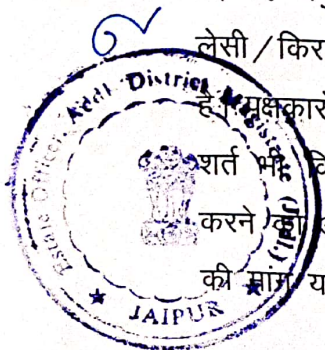 लेसी / किर
है। पक्षकारो
शर्त भी वि
करने का
की मांग य
Estate Officer, Addl. District Magistrate
★ JAIPUR ★